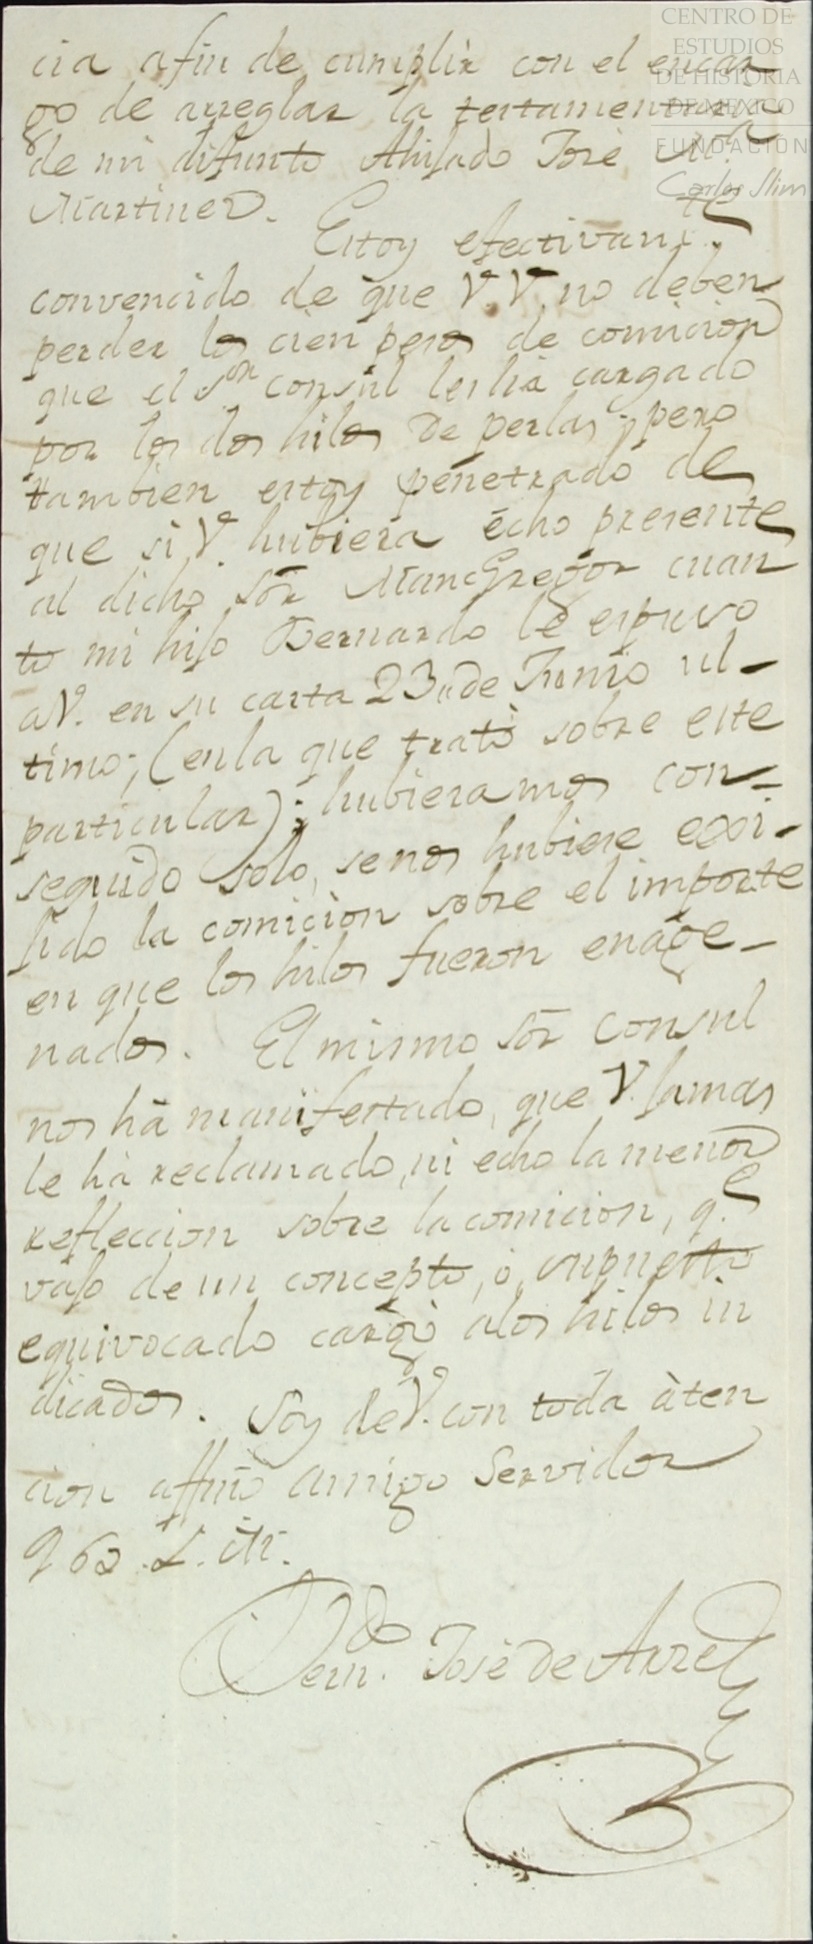 CENTRO DE
ESTUDIOS
DE HISTORIA
DE MEXICO
FUNDACION
Carlos Slim
cia afin de cumplir con el encar
go de arreglar la testamentaria
de mi difunto Ahijado José M.ª
Martinez.
Estoy efectivam.te
convencido de que V.V. no deben
perder los cien pesos de comicion
que el Sor. Consul les há cargado
por los dos hilos de perlas; pero
tambien estoy penetrado de
que si V. hubiera écho presente
al dicho Sõr MancGregor cuan
to mi hijo Bernardo le espuso
a V. en su carta 23,, de Junio ul-
timo; (en la que trató sobre este
particular); hubieramos con-
seguido solo, se nos hubiere exi-
jido la comicion sobre el importe
en que los hilos fueron enage-
nados. El mismo Sõr Consul
nos há manifestado, que V. jamas
le há reclamado, ni echo la menor
refleccion sobre la comicion, q.e
vajo de un concepto, ó, supuesto
equivocado cargó a los hilos in
dicados. Soy de V. con toda àten
cion affmõ amigo Servidor
Bern.do José de Arre